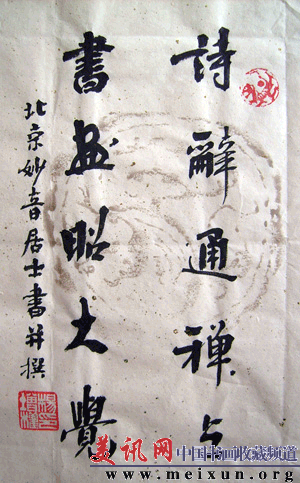 詩辭通禪
書画昭大覺
北京妙音居士書并撰
美讯网
中国书画收藏频道
www.meixun.org